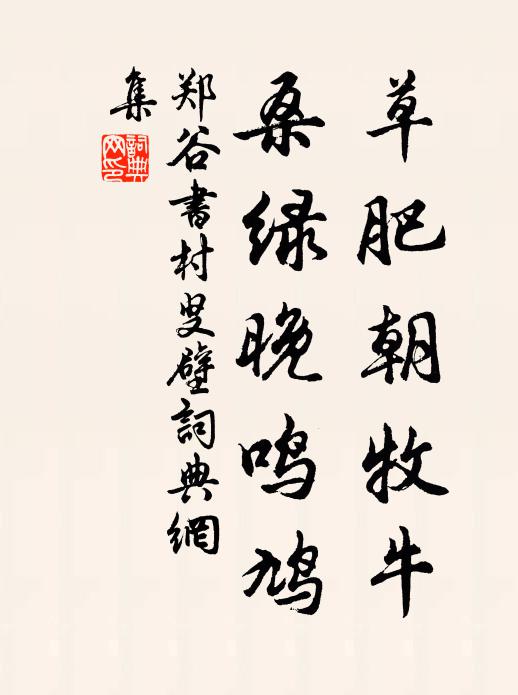 草肥朝牧牛
桑绿晚鸣鸠
郑谷书村叟壁词典網
集
詞典
网印